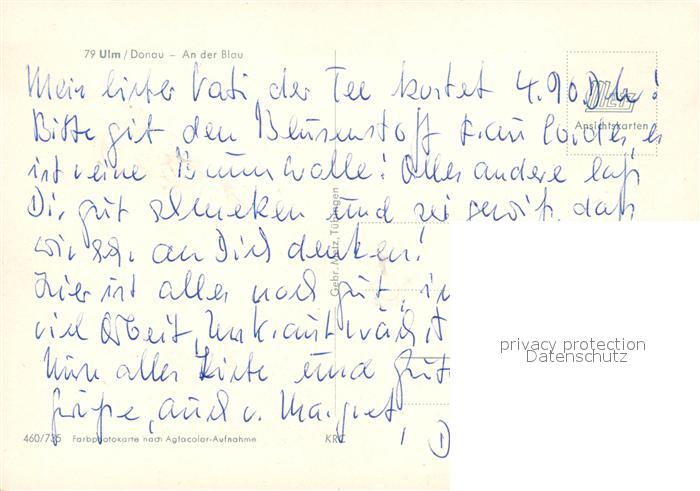 79 Ulm / Donau – An der Blau
Mein lieber Vati, der Tee kostet 4.90 DM!
Bitte gib den Blusenstoff Frau es
Ansichtskarten
ist reine Baumwolle! Alles andere laß
Dir gut schmecken und sei gewiß, daß
wir sehr an Dich denken!
Gebr. Metz, Tübingen
Hier ist alles noch gut, in
viel Arbeit, Unkraut wächst
privacy protection
Datenschutz
Nun alles Liebe und Gute
Grüße, auch v. Margret,
460/735 Farbphotokarte nach Agfacolor-Aufnahme KRC